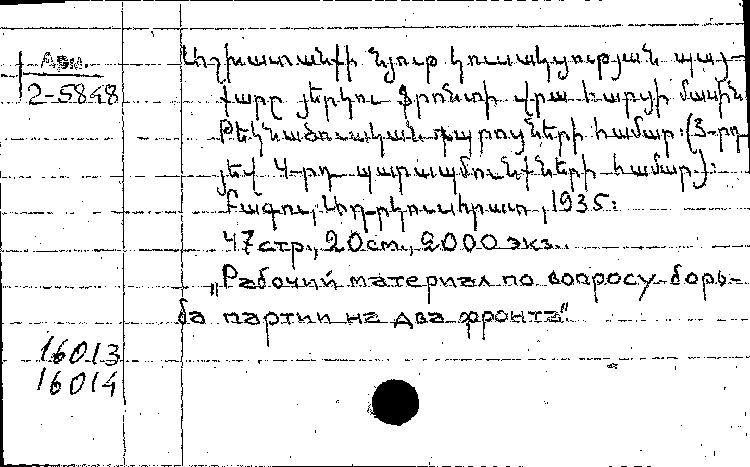 Арм.
2-5848
Աշխատանքի նյութ կուսակցության պայ-
քարը յերկու ֆրոնտի վրա հարցի մասին
Թեկնածուական խմբակների համար: (3-րդ
յեվ 4-րդ պարապմունքների համար):
Բագու, 1935:
47 стр., 20 см., 2000 экз..
„Рабочий материал по вопросу борь-
ба партии на два фронта“
16013
16014